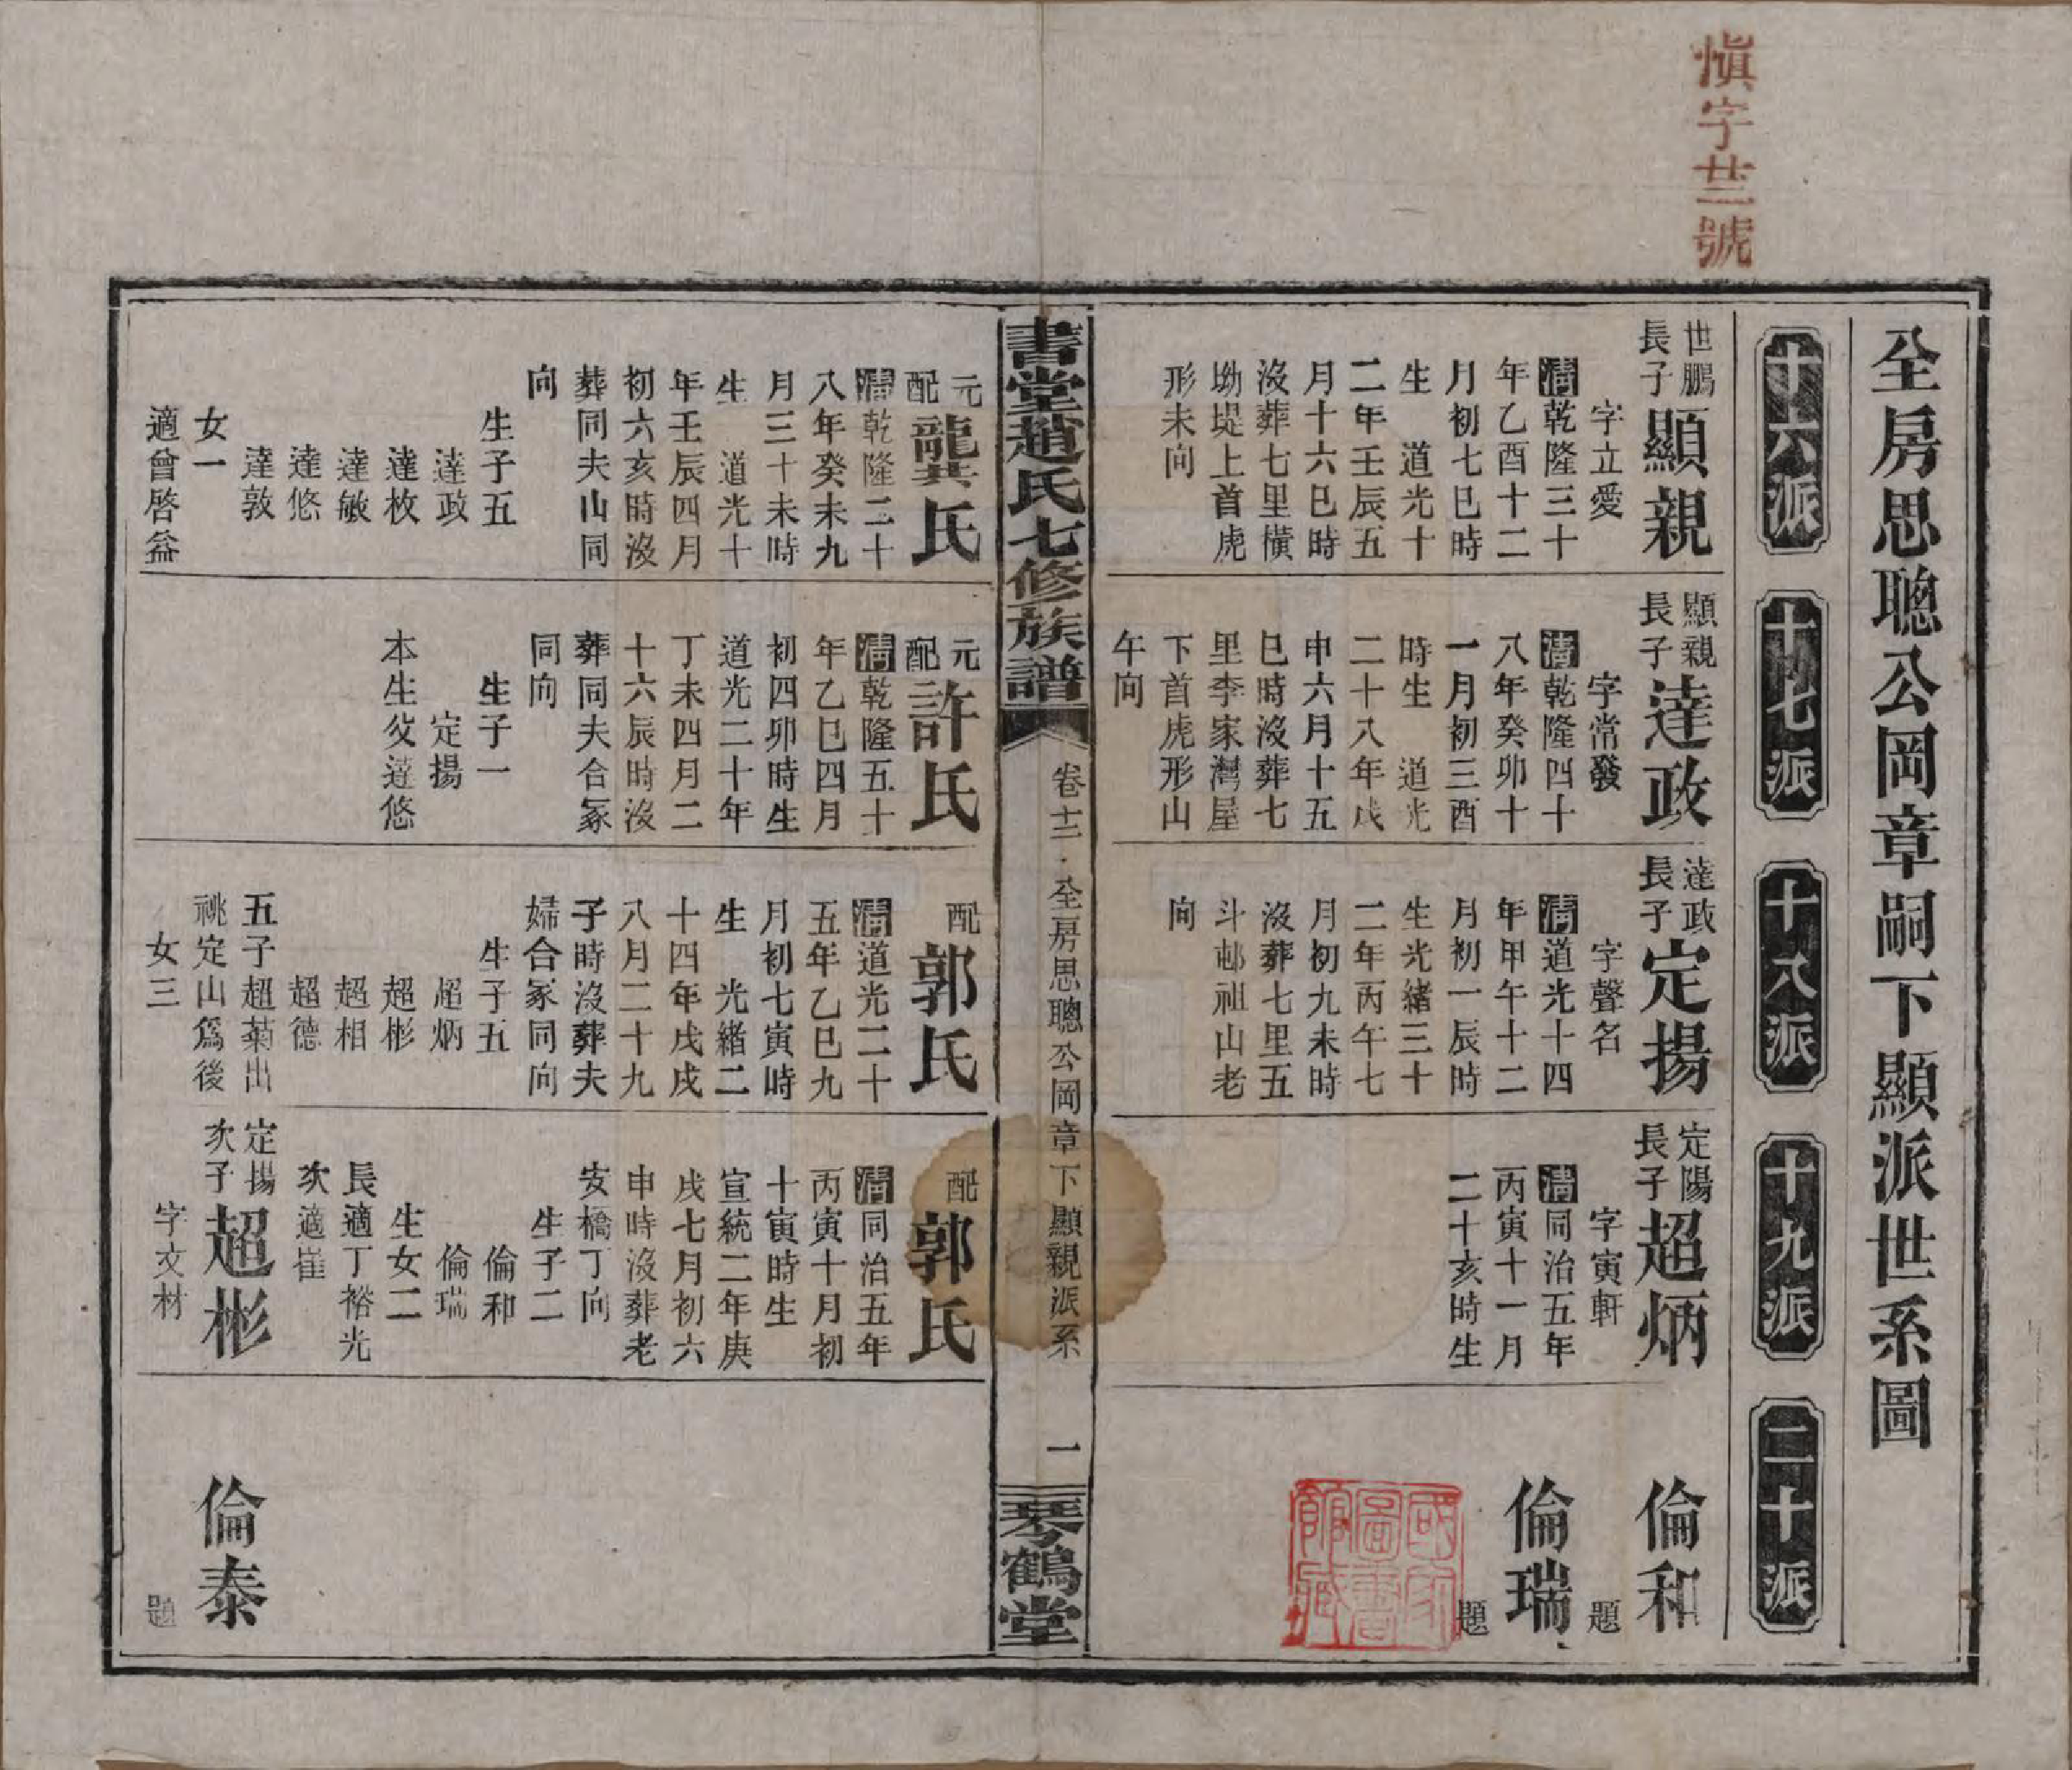 愼字廿三號
全房思聰公岡章嗣下顯派世系圖
十六派
十七派
十八派
十九派
二十派
世鵬
長子
顯親
字立愛
清乾隆三十
年乙酉十二
月初七巳時
生　道光十
二年壬辰五
月十六巳時
沒葬七里橫
坳堤上首虎
形未向
顯親
長子
達政
字常發
清乾隆四十
八年癸卯十
一月初三酉
時生　道光
二十八年戊
申六月十五
巳時沒葬七
里李家灣屋
下首虎形山
午向
達政
長子
定揚
字聲名
清道光十四
年甲午十二
月初一辰時
生光緒三十
二年丙午七
月初九未時
沒葬七里五
斗邨祖山老
向
定陽
長子
超炳
字寅軒
清同治五年
丙寅十一月
二十亥時生
倫和
題
倫瑞
題
國家圖書館藏
書堂趙氏七修族譜
卷十二　全房思聰公岡章下顯親派系
一
琴鶴堂
元
配
龔氏
清乾隆二十
八年癸未九
月三十未時
生　道光十
年壬辰四月
初六亥時沒
葬同夫山同
向
生子五
達政
達枚
達敏
達悠
達敦
女一
適曾啓益
元
配
許氏
清乾隆五十
年乙巳四月
初四卯時生
道光二十年
丁未四月二
十六辰時沒
葬同夫合冢
同向
生子一
定揚
本生父達悠
配
郭氏
清道光二十
五年乙巳九
月初七寅時
生　光緒二
十四年戊戌
八月二十九
子時沒葬夫
婦合冢同向
生子五
超炳
超彬
超相
超德
五子超菊出
祧定山爲後
女三
配
郭氏
清同治五年
丙寅十月初
十寅時生
宣統二年庚
戌七月初六
申時沒葬老
安橋丁向
生子二
倫和
倫瑞
生女二
長適丁裕光
次適崔
定揚
次子
超彬
字文材
倫泰
題